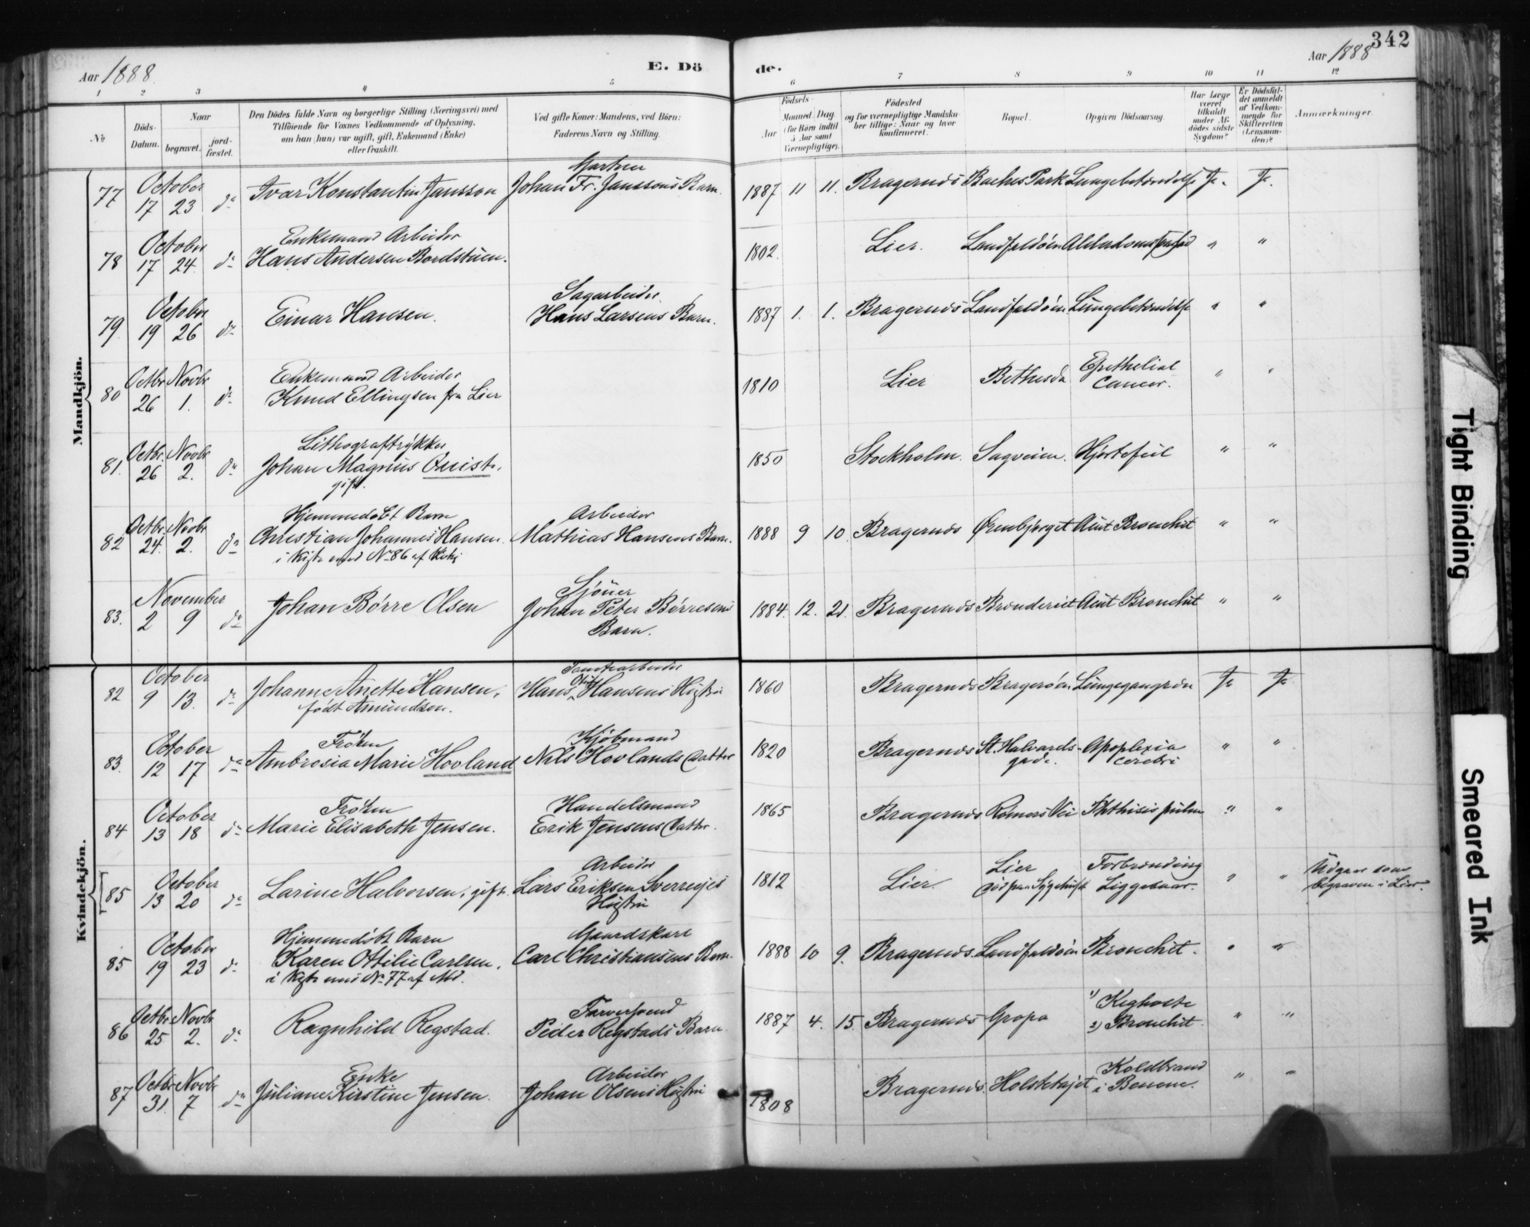 342
Aar 1888.
E. Dö
de.
Aar 1888
1 2 3 4 5 6 7 8 9 10 11 12
No
Döds-Datum.
Naar
begravet.
jord-fæstet.
Den Dödes fulde Navn og borgerlige Stilling (Næringsvei) med
Tilföiende for Voxnes Vedkommende af Oplysning,
om han (hun) var ugift, gift, Enkemand (Enke)
eller fraskilt.
Ved gifte Koner: Mandens, ved Börn:
Faderens Navn og Stilling.
Födsels-
Aar
Maaned Dag
(for Börn indtil
5 Aar samt
Værnepligtige).
Födested
og for værnepligtige Mandskaber tillige: Naar og hvor
konfirmeret.
Bopæl.
Opgiven Dödsaarsag.
Har Læge
været
tilkaldt
under Afdödes sidste
Sygdom?
Er Dödsfaldet anmeldt
af Vedkommende for
Skifteretten
(Lensmanden)?
Anmærkninger.
Mandkjön.
77 October 17 23 do Ivar Konstantin Jansson Johan Fr. Janssons Barn. 1887 11 11. Bragernæs Baches Park Lungebetændelse Ja. Ja.
78 October 17 24 do Enkemand Arbeider
Hans Andersen Bordstuen. 1802. Lier. Landfaldöen " "
79. October 19 26 do Einar Hansen. Sagarbeider
Hans Larsens Barn. 1887 1. 1. Bragernæs Landfaldöen Lungebetændelse " "
80 Octbr. 26 Novbr. 1. do Enkemand Arbeider
Knud Ellingsen fra Lier 1810 Lier Bethesda Epithelial
Cancer. " "
81. Octbr. 26 Novbr. 2. do Lithograftrykker
Johan Magnus Quist,
gift. 1850 Stockholm. Sagveien. Hjertefeil " "
82 Octbr. 24. Novbr. 2. do Hjemmedöbt Barn
Christian Johannes Hansen.
i Kiste med No 86 af Kvkj Arbeider
Mathias Hansens Barn. 1888 9 10. Bragernæs Ørenbjerget Acut Bronchit " "
83. November 2 9 do Johan Börre Olsen Sjöner
Johan Peter Börresens
Barn. 1884. 12. 21. Bragernæs Brænderiet Acut Bronchit " "
Kvindekjön.
82 October 9 13. do Johanne Anette Hansen,
födt Amundsen. Tomtearbeider
Hans Hansens Hustru 1860 Bragernæs Bragerøen Lungegangræn Ja Ja
83. October 12 17 do Fröken
Ambrosia Marie Hovland Kjöbmand
Nils Hovlands Datter 1820 Bragernæs St. Halvards-
gade. Apoplexia
cerebri " "
84 October 13 18 do Fröken
Marie Elisabeth Jensen. Handelsmand
Erik Jensens Datter. 1865 Bragernæs Römers Vei Phthisis pulm " "
85 October 13 20 do Larine Halvorsen, gift. Arbeider
Lars Eriksen Sverresjes
Hustru 1812 Lier Lier
Forbrænding
Liggesaar. " " Udgaar som
begraven i Lier.
85 October 19 23 do Hjemmedöbt Barn
Karen Ottilie Carlsen,
i Kiste med No 77 af Md. Gaardskarl
Carl Christiansens Barn. 1888 10 9. Bragernæs. Landfaldöen Bronchit. " "
86 Octbr. 25 Novbr. 2. do Ragnhild Regstad. Farversvend
Peder Regstads Barn 1887 4. 15 Bragernæs Gropa 1) Kighoste
2) Bronchit " "
87 Octbr. 31. Novbr. 7 do Enke
Juliane Kirstine Jensen. Arbeider
Johan Olsens Hustru 1808 Bragernæs. Holstehajet Koldbrand
i Benene. " "
Tight Binding
Smeared Ink